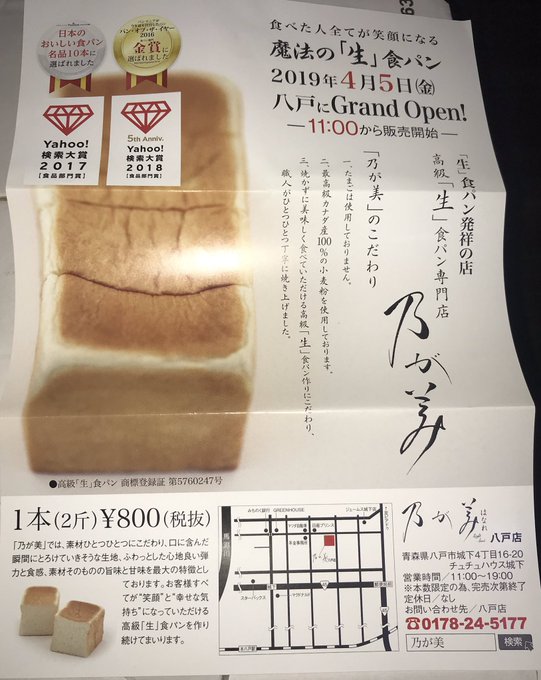 日本の
おいしい食パン
名品10本に
選ばれました
パン・オブ・ザ・イヤー
2016
金賞に
選ばれました
Yahoo!
検索大賞
2017
【食品部門賞】
5th Anniv.
Yahoo!
検索大賞
2018
【食品部門賞】
食べた人全てが笑顔になる
魔法の「生」食パン
2019年4月5日㊎
八戸にGrand Open!
―11:00から販売開始―
「生」食パン発祥の店
高級「生」食パン専門店
乃が美
「乃が美」のこだわり
一、たまごは使用しておりません。
二、最高級カナダ産100%の小麦粉を使用しております。
三、焼かずに美味しく食べていただける高級「生」食パン作りにこだわり、
職人がひとつひとつ丁寧に焼き上げました。
●高級「生」食パン 商標登録証 第5760247号
1本(2斤)¥800(税抜)
「乃が美」では、素材ひとつひとつにこだわり、口に含んだ
瞬間にとろけていきそうな生地、ふわっとした心地良い弾
力と食感、素材そのものの旨味と甘味を最大の特徴とし
ております。お客様すべ
てが“笑顔”と“幸せな気
持ち”になっていただける
高級「生」食パンを作り
続けてまいります。
みちのく銀行
GREENHOUSE
ジェームス城下
馬淵川
マツダ自販
日産プリンス
乃が美
スターバックス
マクドナルド
本八戸駅
乃が美
はなれ
八戸店
青森県八戸市城下4丁目16-20
チュチュハウス城下
営業時間/11:00〜19:00
※本数限定の為、完売次第終了
定休日/なし
お問い合わせ先/八戸店
☎0178-24-5177
乃が美 検索
63